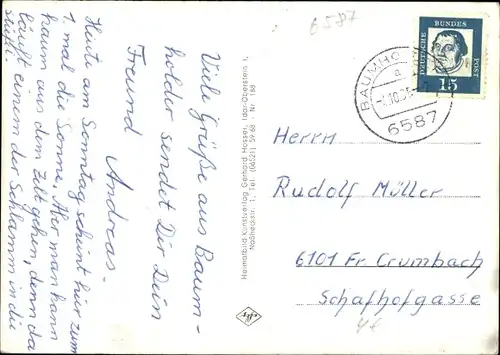 6587
Viele Grüße aus Baum-
holder sendet Dir Dein
Freund Andreas.
Heute am Sonntag scheint hier zum
1. mal die Sonne. Aber man kann
kaum aus dem Zelt gehen, denn da
läuft einem der Schlamm in die
Heimatbild Kunstverlag Gerhard Hosser, Idar-Oberstein 1,
1, Tel. (06521) 5968 · Nr. 188
DEUTSCHE
BUNDES
POST
15
BAUMHO
a
6587
Herrn
Rudolf Müller
6101 Fr. Crumbach
Schafhofgasse